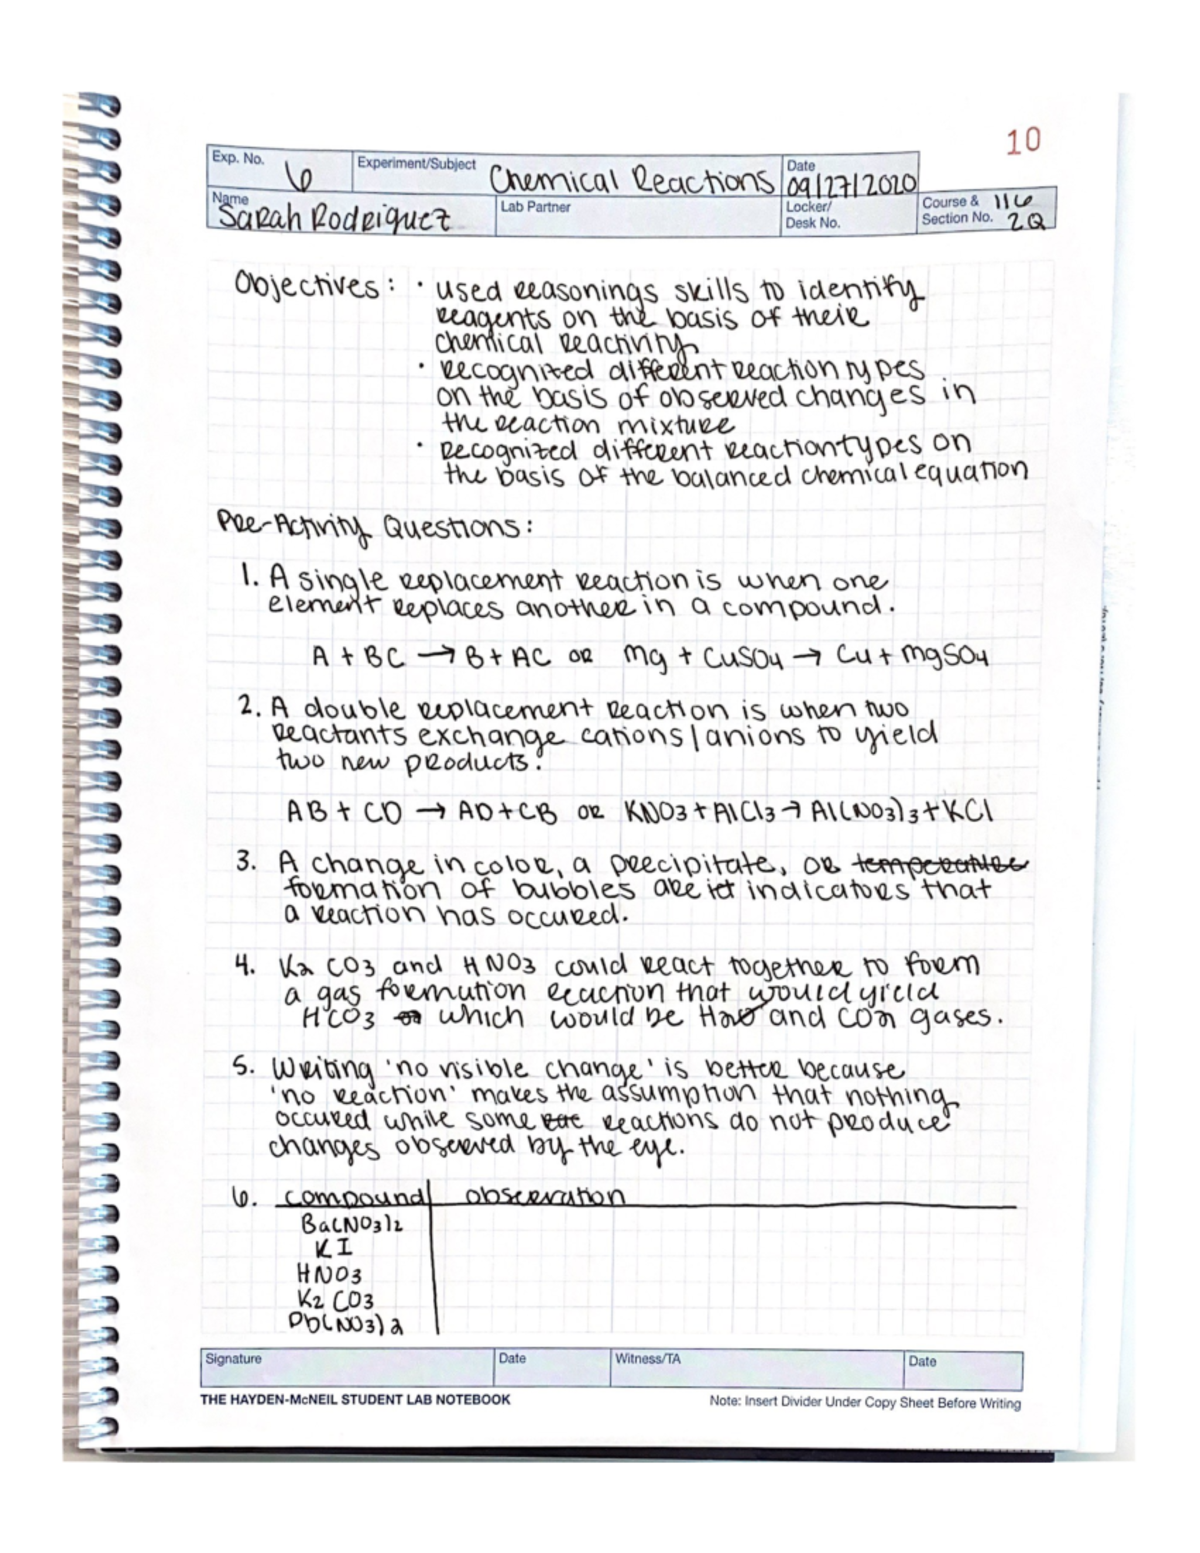 10
Exp. No. 6 Experiment/Subject Chemical Reactions Date 09/27/2020
Name Sarah Rodriguez Lab Partner Locker/ Desk No. Course & Section No. 116 2Q
Objectives: · used reasonings skills to identify
reagents on the basis of their
chemical reactivity
· recognized different reaction types
on the basis of observed changes in
the reaction mixture
· recognized different reaction types on
the basis of the balanced chemical equation
Pre-Activity Questions:
1. A single replacement reaction is when one
element replaces another in a compound.
A + BC → B + AC or Mg + CuSO4 → Cu + MgSO4
2. A double replacement reaction is when two
reactants exchange cations/anions to yield
two new products.
AB + CD → AD + CB or KNO3 + AlCl3 → Al(NO3)3 + KCl
3. A change in color, a precipitate, or temperature
formation of bubbles are indicators that
a reaction has occured.
4. K2 CO3 and HNO3 could react together to form
a gas formation reaction that would yield
HCO3 which would be H2O and CO2 gases.
5. Writing 'no visible change' is better because
'no reaction' makes the assumption that nothing
occured while some reactions do not produce
changes observed by the eye.
6. compound observation
Ba(NO3)2
KI
HNO3
K2 CO3
Pb(NO3)2
Signature Date Witness/TA Date
THE HAYDEN-McNEIL STUDENT LAB NOTEBOOK Note: Insert Divider Under Copy Sheet Before Writing